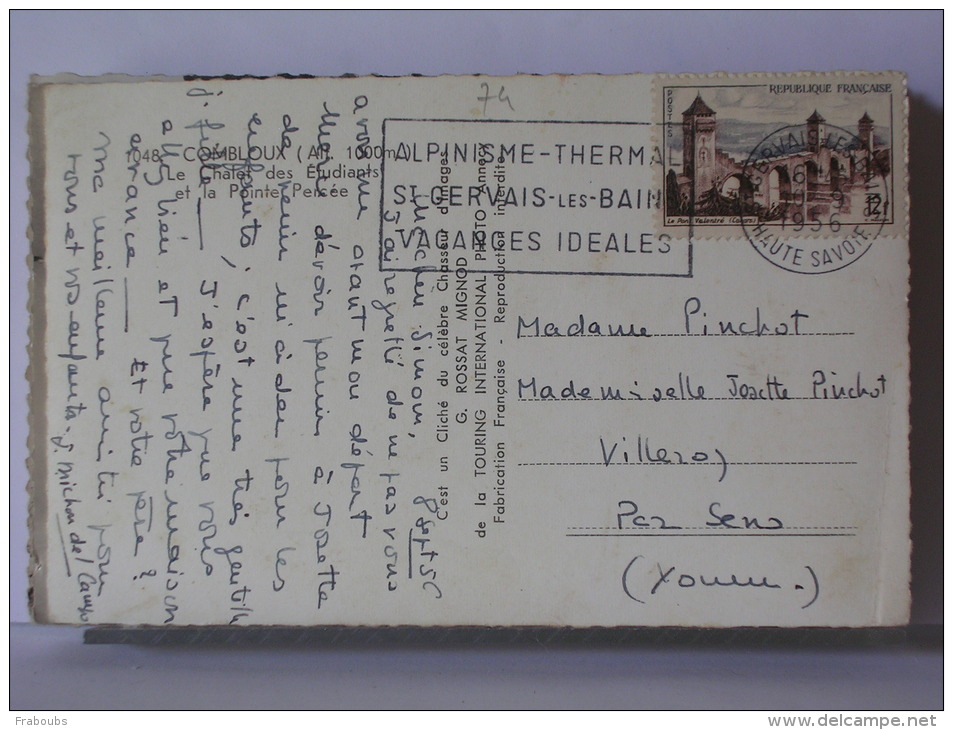 74
1048 - COMBLOUX (Alt. 1000m)
Le Chalet des Étudiants
et la Pointe Percée
ALPINISME-THERMAL
ST-GERVAIS-LES-BAINS
VACANCES IDEALES
REPUBLIQUE FRANÇAISE
POSTES
12f
Le Pont Valentré (Cahors)
ST GERVAIS-LES-BAINS
16
9
1956
HAUTE SAVOIE
C'est un Cliché du célèbre Chasseur d'Images
G. ROSSAT MIGNOD
de la TOURING INTERNATIONAL PHOTO Annecy
Fabrication Française - Reproduction interdite
Madame Pinchot
Mademoiselle Josette Pinchot
Villeroy
Par Sens
(Yonne.)
9 sept 56
Ma chère Simone,
J'ai regretté de ne pas vous
avoir avant mon départ
Merci d'avoir permis à Josette
de venir m'aider pour les
enfants, c'est une très gentille
j. fille — J'espère que vous
allez bien et que votre maison
avance — Et votre père?
Ma meilleure amitié pour
vous et vos enfants.
J. Michon del Campo
Fraboubs
www.delcampe.net